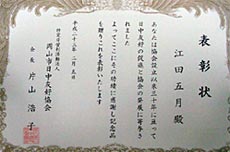 表彰状
江田五月殿
あなたは協会設立以来三十年に亘って
日中友好の促進と協会の発展に寄与さ
れました
よってここにその功績に感謝し記念品
を贈りこれを表彰いたします
平成二十三年二月五日
特定非営利活動法人
岡山市日中友好協会
会長 片山浩子